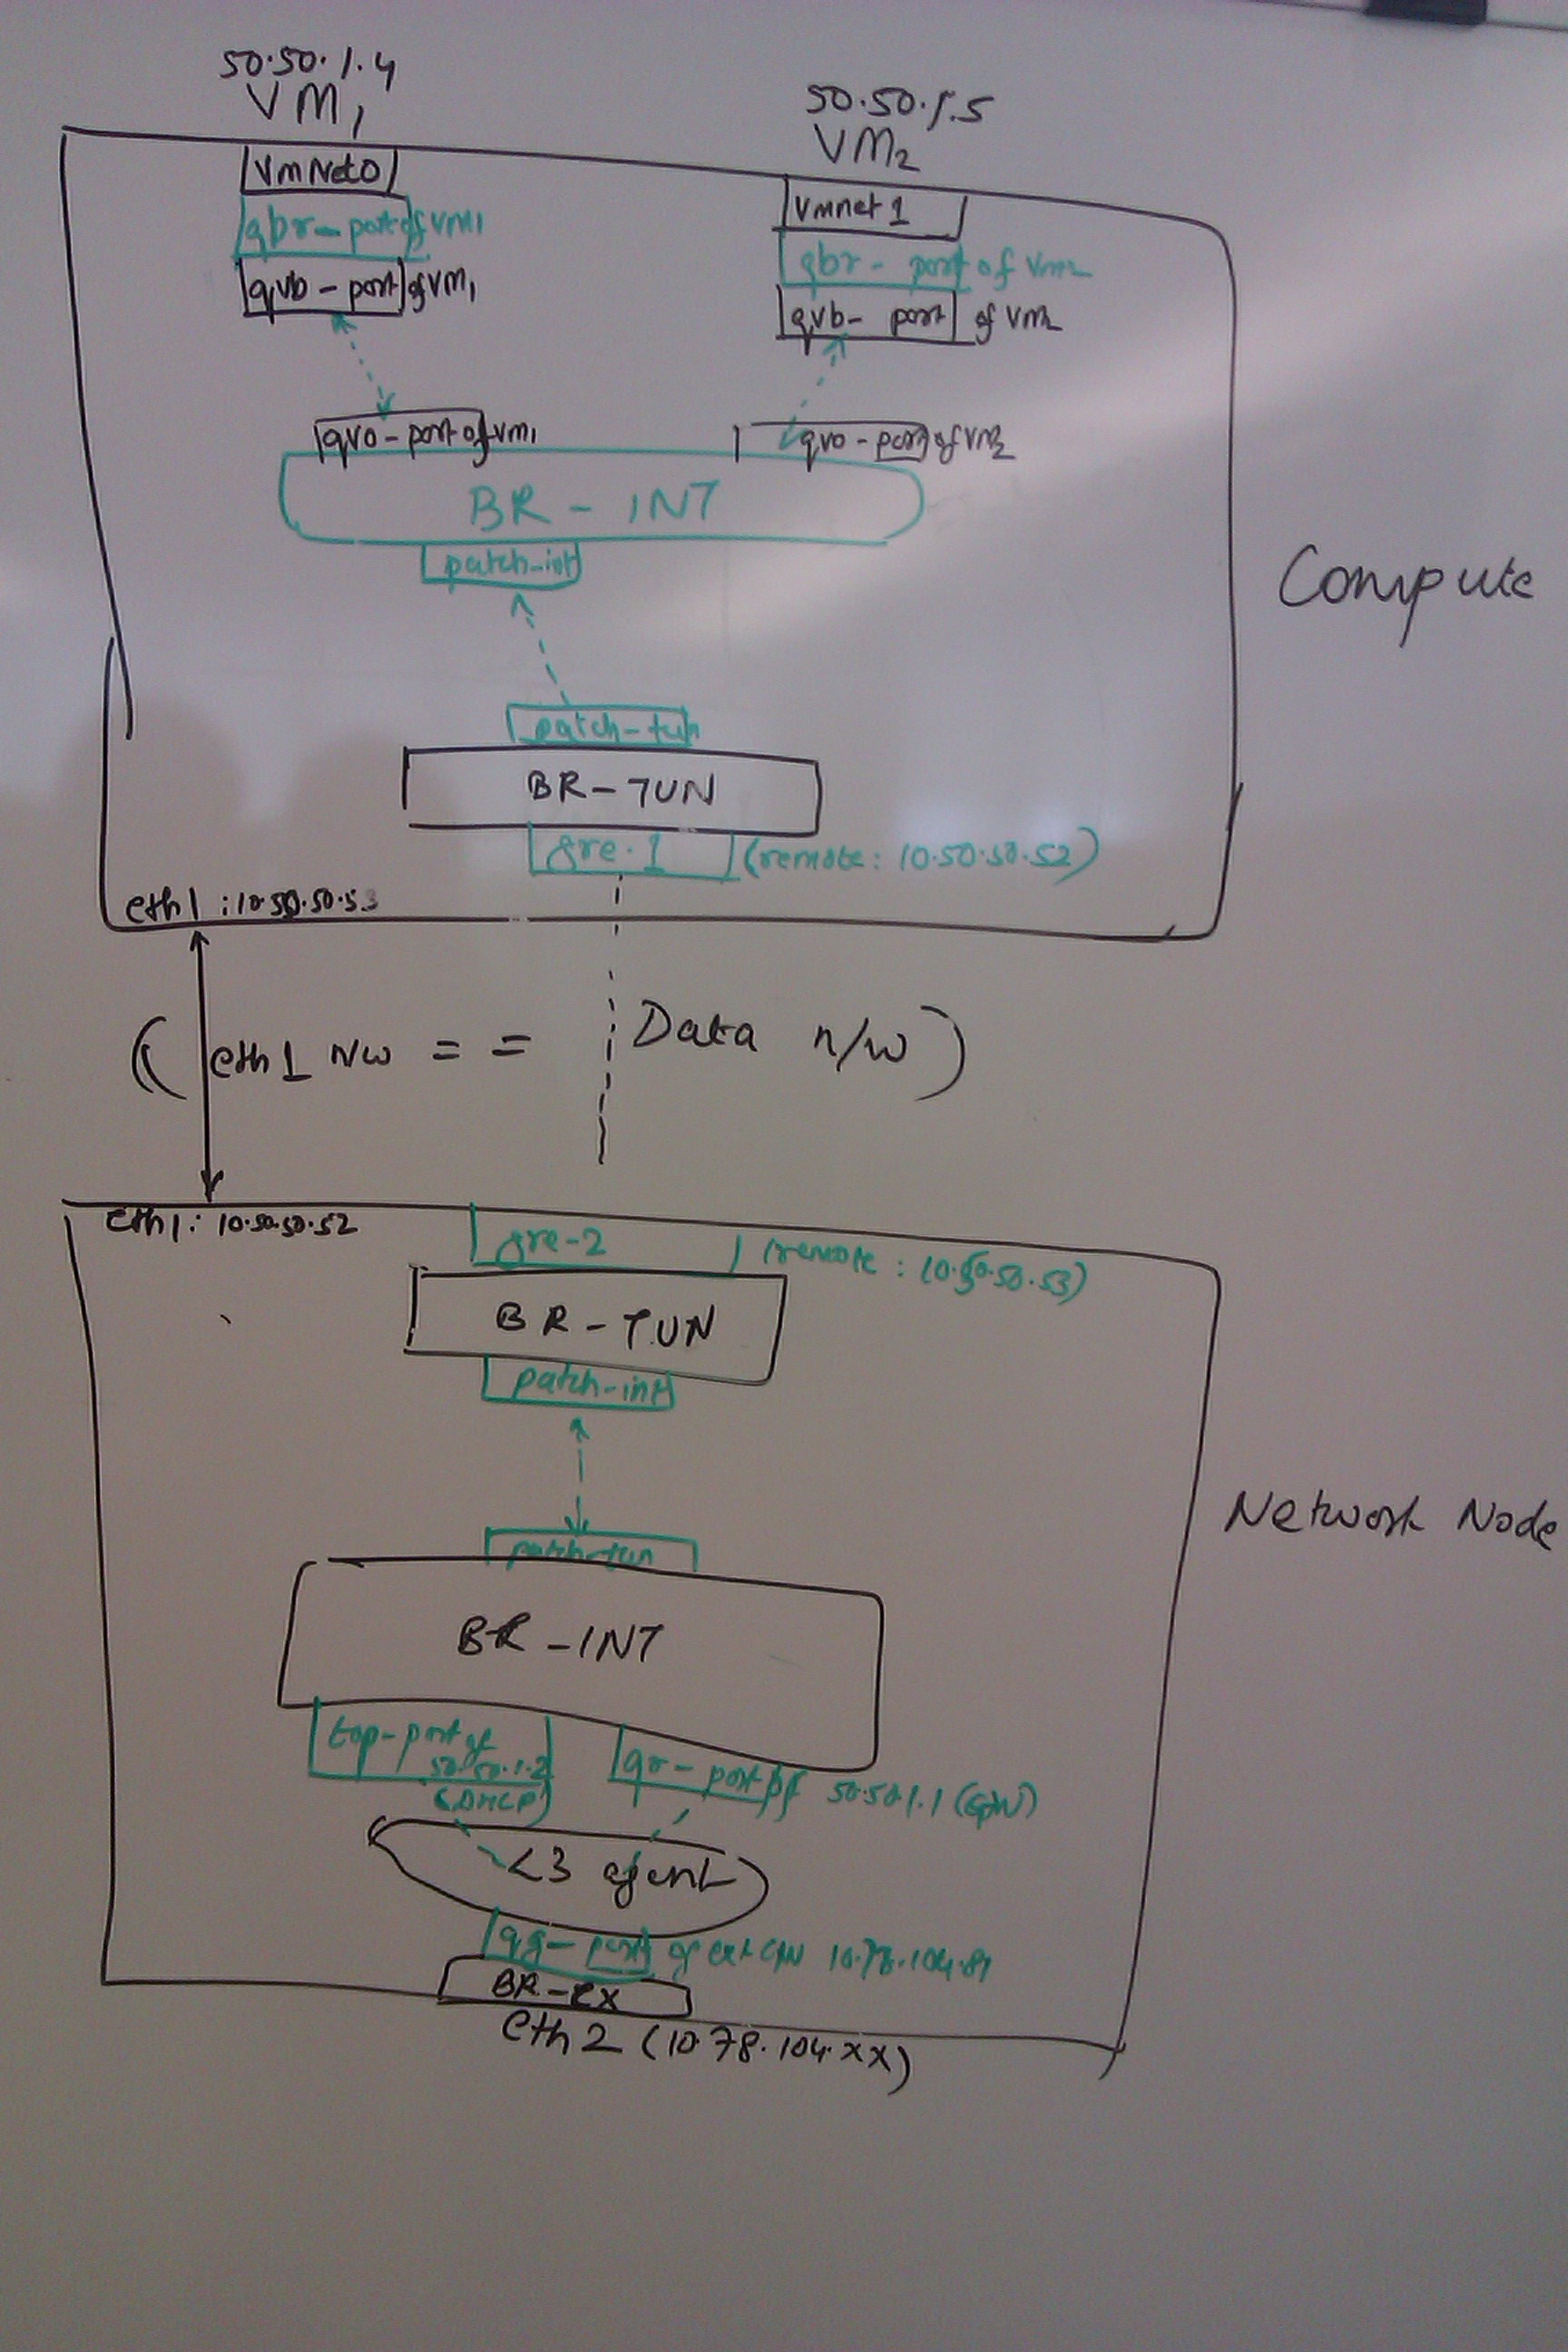 50.50.1.4
VM1
50.50.1.5
VM2
VmNet0
qbr-port of VM1
qvb-port of VM1
Vmnet1
qbr- port of Vm2
qvb- port of Vm2
qvo-port of vm1
qvo-port of Vm2
BR-INT
patch-int
Compute
patch-tun
BR-TUN
gre-1 (remote: 10.50.50.52)
eth1:10.50.50.53
(eth1 NW == Data n/w)
eth1: 10.50.50.52
gre-2 (remote: 10.50.50.53)
BR-TUN
patch-int
Network Node
patch-tun
BR-INT
tap-port of
50.50.1.2
(DHCP)
qr-port of 50.50.1.1 (GW)
L3 agent
qg-port of ext GW
BR-ex
eth2 (10.78.104.xx)